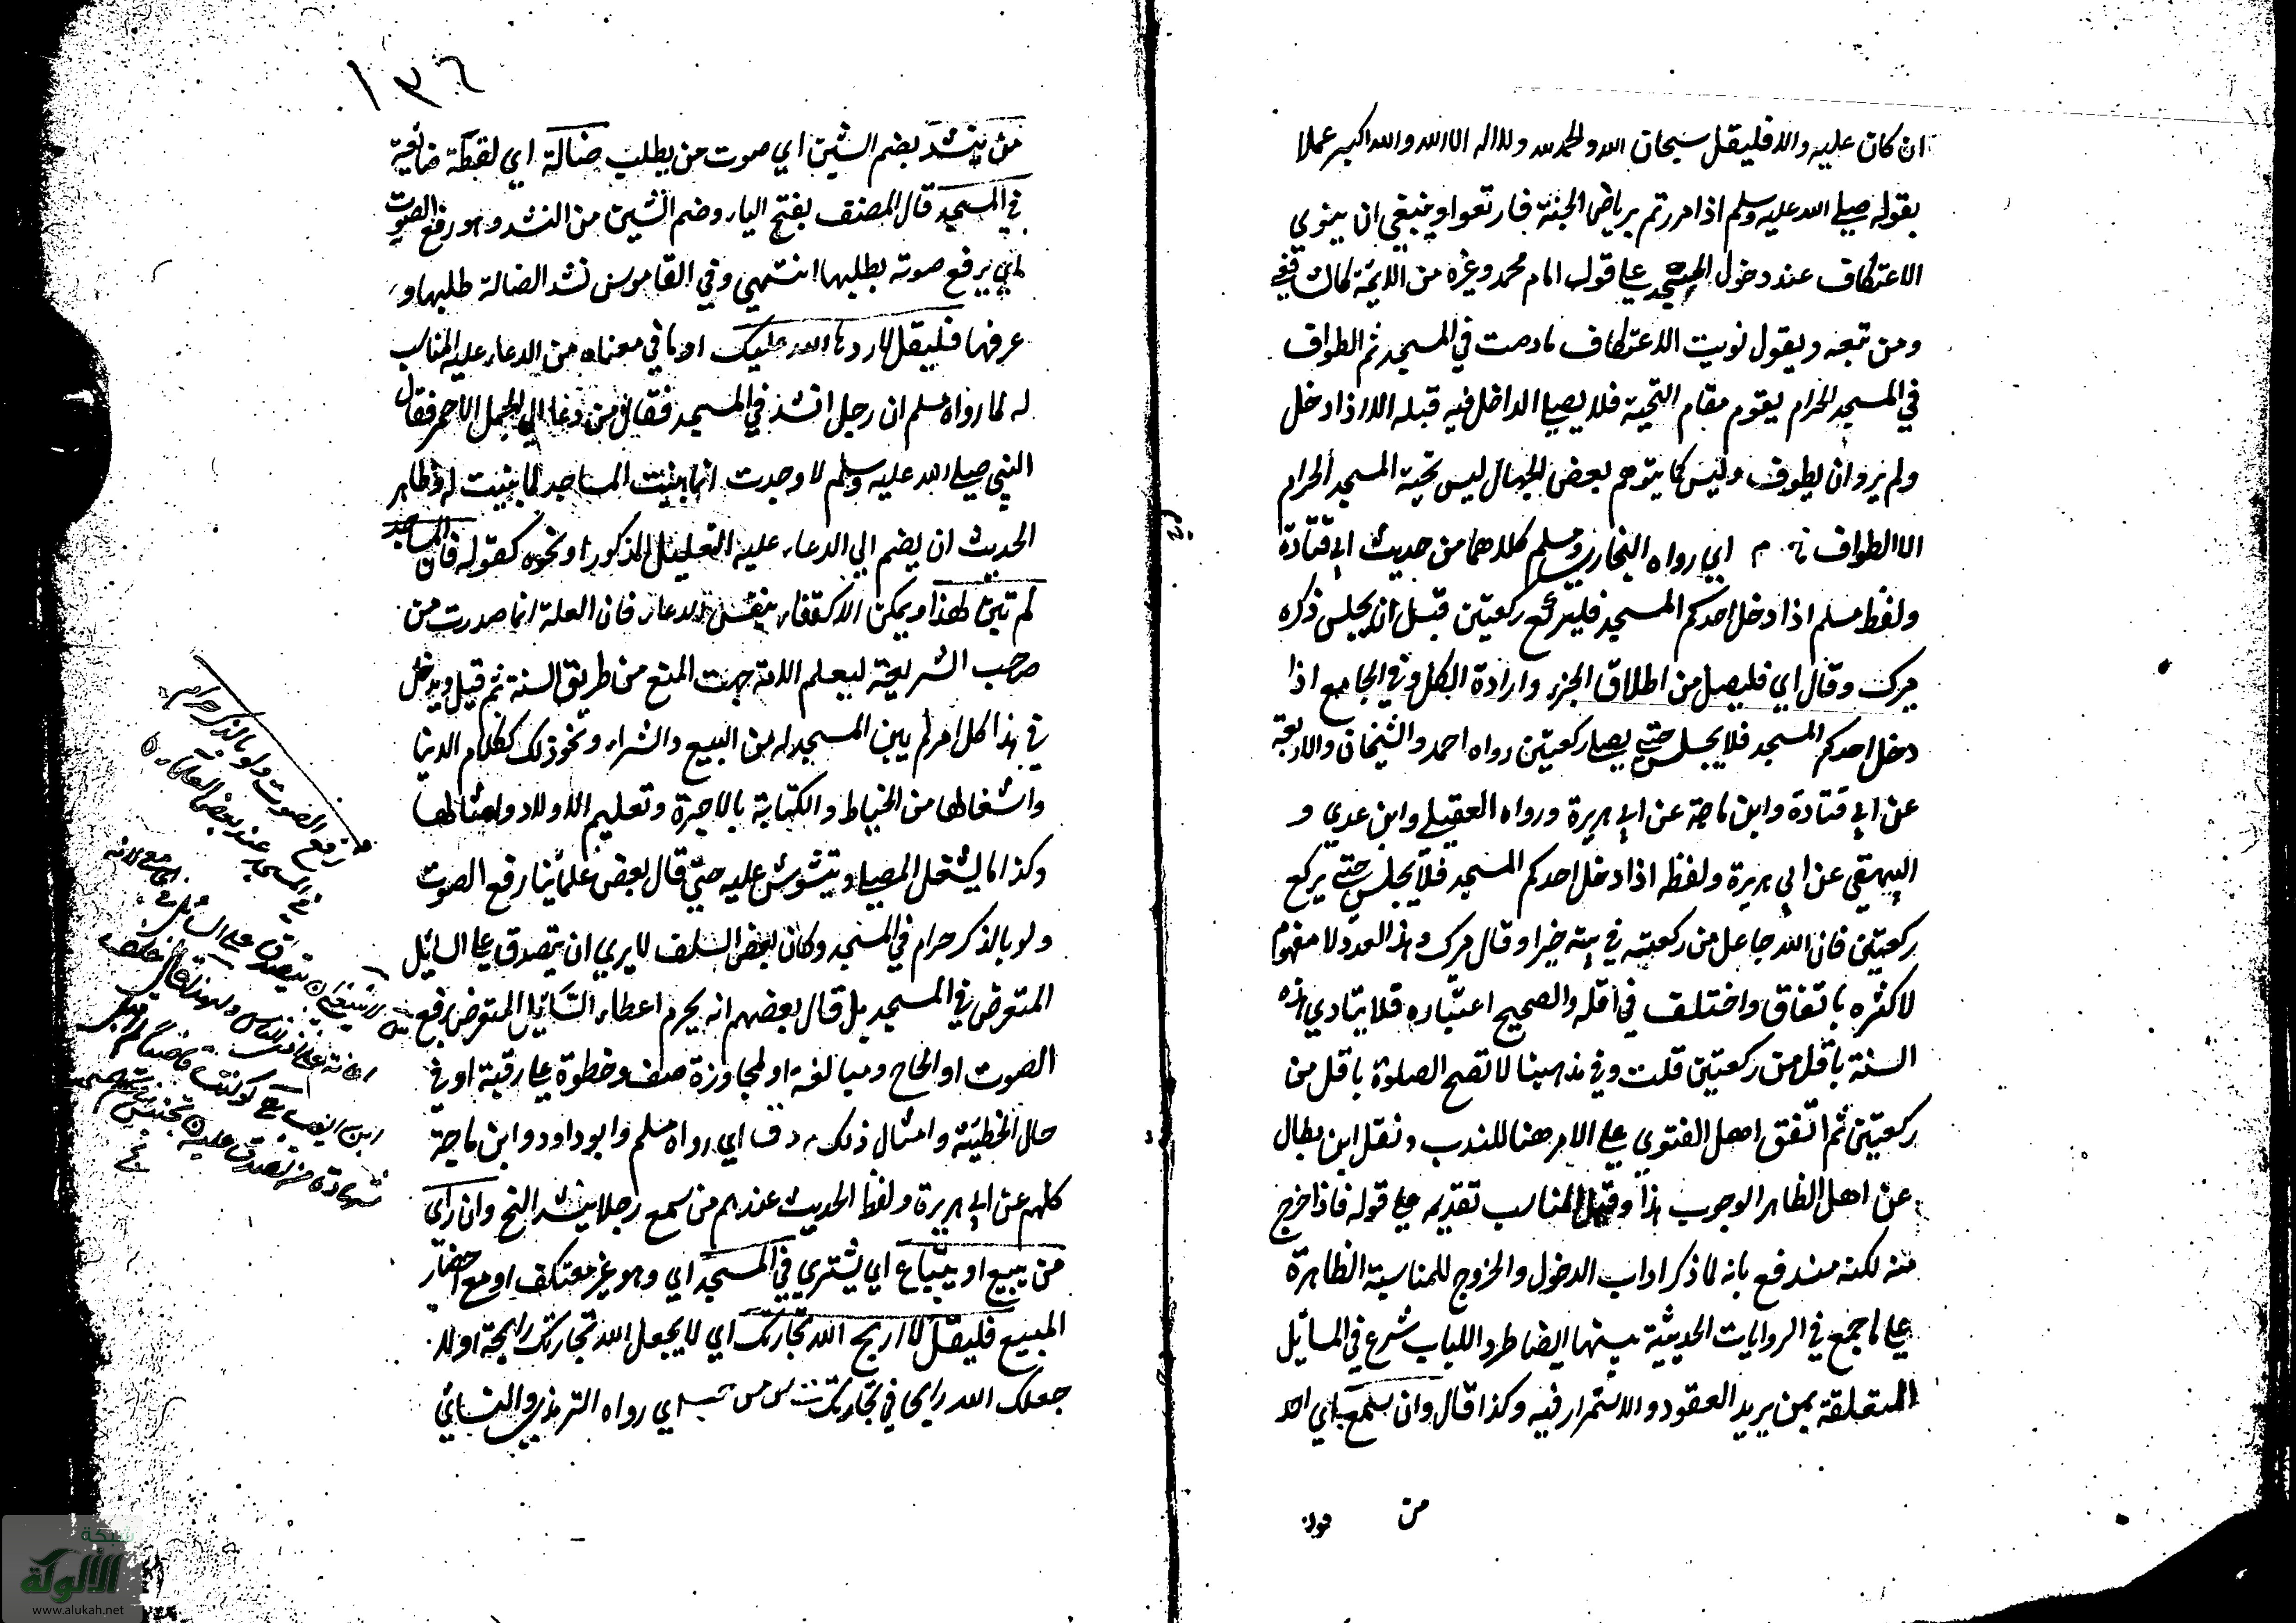 ان كان عليه والا فليقل سبحان الله والحمد لله ولا اله الا الله والله اكبر عملا
بقوله صلى الله عليه وسلم اذا مررتم برياض الجنة فارتعوا وينبغي ان ينوي
الاعتكاف عند دخول المسجد على قول امام محمد وغيره من الائمة كالشافعي
ومن تبعه ويقول نويت الاعتكاف ما دمت في المسجد ثم الطواف
في المسجد الحرام يقوم مقام التحية فلا يصلي الداخل فيه قبله الا اذا دخل
ولم يرد ان يطوف وليس كما يتوهم بعض الجهال ليس تحية المسجد الحرام
الا الطواف خ م اي رواه البخاري ومسلم كلاهما من حديث ابي قتادة
ولفظ مسلم اذا دخل احدكم المسجد فليركع ركعتين قبل ان يجلس ذكره
ميرك وقال اي فليصل من اطلاق الجزء وارادة الكل وفي الجامع اذا
دخل احدكم المسجد فلا يجلس حتى يصلي ركعتين رواه احمد والشيخان والاربعة
عن ابي قتادة وابن ماجة عن ابي هريرة ورواه العقيلي وابن عدي و
البيهقي عن ابي هريرة ولفظه اذا دخل احدكم المسجد فلا يجلس حتى يركع
ركعتين فان الله جاعل من ركعتيه في بيته خيرا وقال ميرك وهذا العدد لا مفهوم
لاكثره باتفاق واختلف في اقله والصحيح اعتباره فلا يتادي هذه
السنة باقل من ركعتين قلت وفي مذهبنا لا تصح الصلوة باقل من
ركعتين ثم اتفق اهل الفتوى على الامر هنا للندب ونقل ابن بطال
عن اهل الظاهر الوجوب هذا وقيل المناسب تقديمه على قوله فاذا خرج
منه لكنه مندفع بانه لما ذكر اداب الدخول والخروج للمناسبة الظاهرة
على ما جمع في الروايات الحديثية بينهما ايضا طرد اللباب شرع في المسائل
المتعلقة بمن يريد العقود والاستمرار فيه وكذا قال وان سمع اي احد
من
١٣٦
من ينشد بضم الشين اي صوت من يطلب ضالة اي لقطة ضائعة
في المسجد قال المصنف بفتح الياء وضم الشين من النشد وهو رفع الصوت
اي يرفع صوته بطلبها انتهى وفي القاموس نشد الضالة طلبها و
عرفها فليقل لا ردها الله عليك او ما في معناه من الدعاء عليه المناسب
له لما رواه مسلم ان رجلا نشد في المسجد فقال من دعا الي الجمل الاحمر فقال
النبي صلى الله عليه وسلم لا وجدت انما بنيت المساجد لما بنيت له فظاهر
الحديث ان يضم الى الدعاء عليه التعليل المذكور او نحوه كقوله فان المساجد
لم تبن لهذا ويمكن الاكتفاء بنفس الدعاء فان العلة انما صدرت من
صاحب الشريعة ليعلم الامة جهت المنع من طريق السنة ثم قيل ويدخل
في هذا كل امر لم يبن المسجد له من البيع والشراء ونحو ذلك ككلام الدنيا
واشغالها من الخياط والكتابة بالاجرة وتعليم الاولاد وامثالها
وكذا ما يشغل المصلي ويتشوش عليه حتى قال بعض علمائنا رفع الصوت
ولو بالذكر حرام في المسجد وكان بعض السلف لا يرى ان يتصدق على السائل
المتعرض في المسجد بل قال بعضهم انه يحرم اعطاء السائل المتعرض برفع
الصوت او الحاح ومبالغة او لمجاوزة صف وخطوة على رقبة او في
حال الخطبة وامثال ذلك م د ق اي رواه مسلم وابو داود وابن ماجة
كلهم عن ابي هريرة ولفظ الحديث عندهم من سمع رجلا ينشد الخ وان راى
من يبيع او يبتاع اي يشتري في المسجد اي وهو غير معتكف او مع احضار
المبيع فليقل لا اربح الله تجارتك اي لا يجعل الله تجارتك رابحة او لا
جعلك الله رابحا في تجارتك ت س مس حب اي رواه الترمذي والنسائي
رفع الصوت ولو بالذكر حرام
في المسجد عند بعض العلماء
شبكة
الألوكة
www.alukah.net